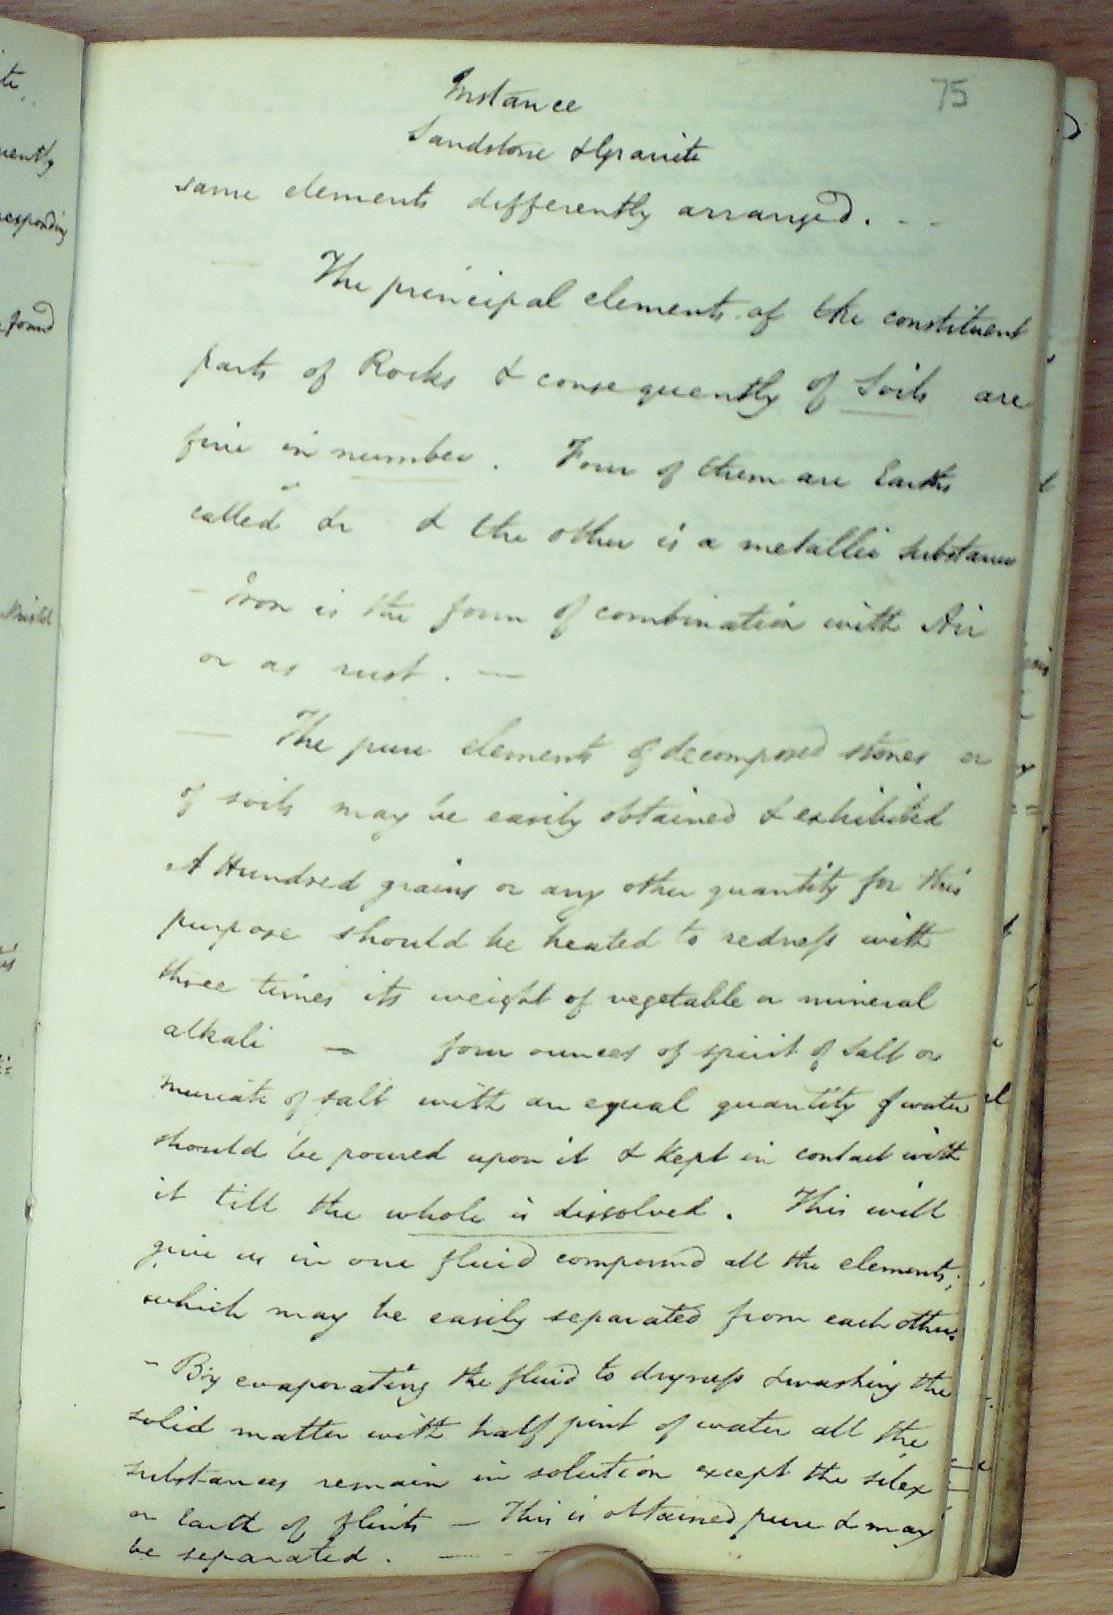 75
Instance
Sandstone & Granite
same elements differently arranged. - -
The principal elements of the constituent
parts of Rocks & consequently of Soils are
five in number. Four of them are Earths
called &c & the other is a metallic substance
- Iron is the form of combination with Air
or as rust. —
— The pure elements of decomposed stones or
of soils may be easily obtained & exhibited
A Hundred grains or any other quantity for this
purpose should be heated to redness with
three times its weight of vegetable or mineral
alkali — four ounces of spirit of salt or
muriate of salt with an equal quantity of water
should be poured upon it & kept in contact with
it till the whole is dissolved. This will
give us in one fluid compound all the elements;
which may be easily separated from each other.
- By evaporating the fluid to dryness & washing the
solid matter with half pint of water all the
substances remain in solution except the silex
or Earth of flints — This is obtained pure & may
be separated. — - —